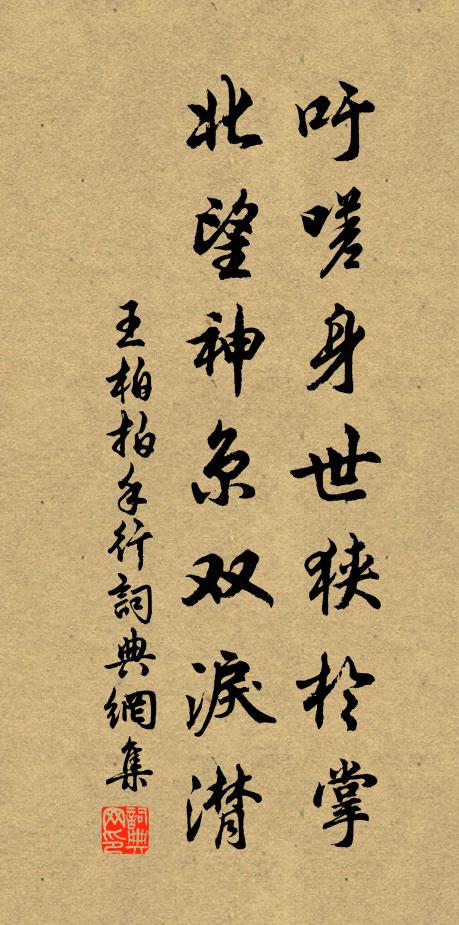 吁嗟身世狭於掌
北望神京双淚潸
王柏拍手行詞典網集
詞典网印